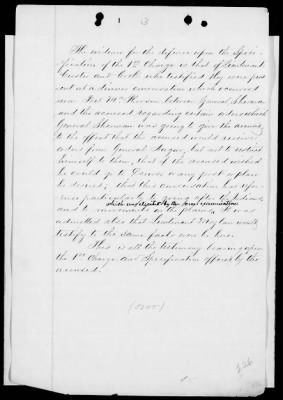 3
The evidence for the defence upon the Speci-
fication of the 1st Charge is that of Lieutenant
Custer and Cook who testified they were pres-
ent at a dinner conversation which occurred
near Fort McPherson between General Sherman
and the accused regarding certain orders which
General Sherman was going to give the accused
to the effect that the accused would receive
orders from General Augur, but not to restrict
himself to them, that if the accused wished
he could go to Denver or any first place
he desired; that this conversation had refer-
ence particularly to going after the Indians,
and to movements on the plains, It was
admitted also that Lieutenant Moylan would
testify to the same facts were he here.
This is all the testimony bearing upon
the 1st Charge and Specification offered by the
accused.
(over)